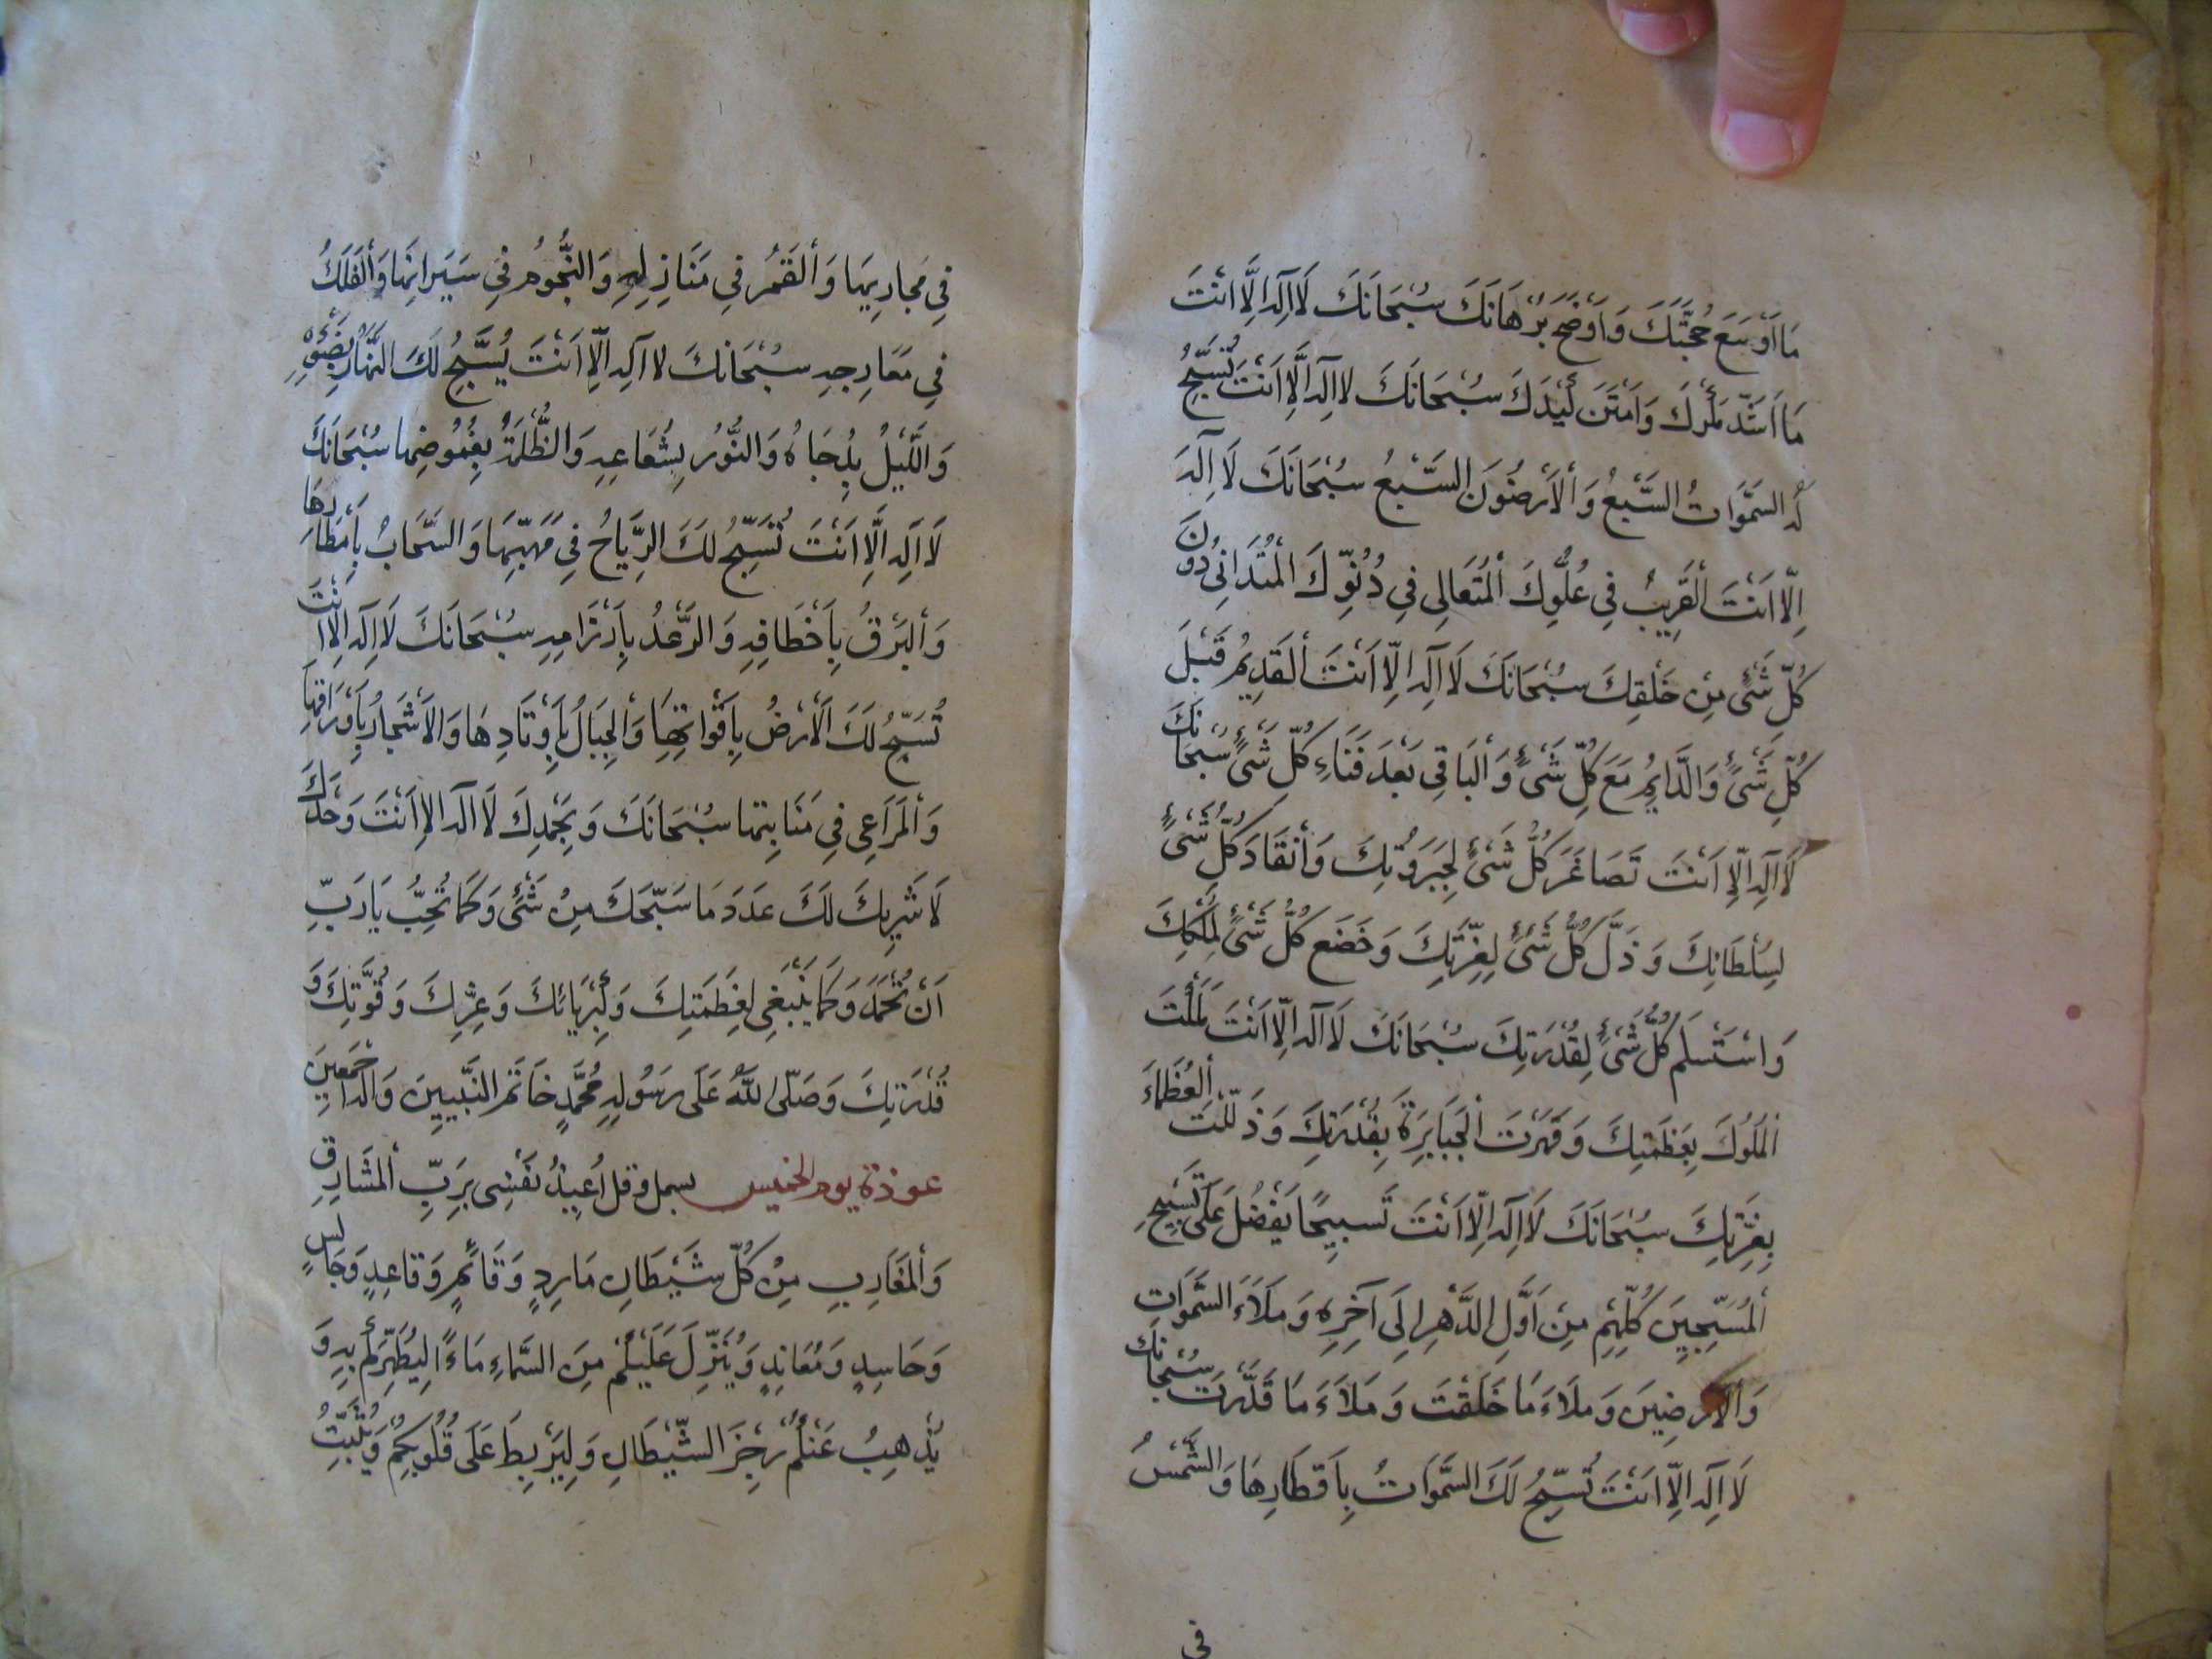 مَا اَوْسَعَ حُجَّتَكَ وَاَوْضَحَ بُرْهَانَكَ سُبْحَانَكَ لَا اِلَهَ اِلَّا اَنْتَ
مَا اَشَدَّ مَكْرَكَ وَاَمْتَنَ كَيْدَكَ سُبْحَانَكَ لَا اِلَهَ اِلَّا اَنْتَ تُسَبِّحُ
لَهُ السَّمَوَاتُ السَّبْعُ وَالْاَرَضُونَ السَّبْعُ سُبْحَانَكَ لَا اِلَهَ
اِلَّا اَنْتَ الْقَرِيبُ فِي عُلُوِّكَ الْمُتَعَالِي فِي دُنُوِّكَ الْمُتَدَانِي دُونَ
كُلِّ شَيْءٍ مِنْ خَلْقِكَ سُبْحَانَكَ لَا اِلَهَ اِلَّا اَنْتَ الْقَدِيمُ قَبْلَ
كُلِّ شَيْءٍ وَالدَّايِمُ مَعَ كُلِّ شَيْءٍ وَالْبَاقِي بَعْدَ فَنَاءِ كُلِّ شَيْءٍ سُبْحَانَكَ
لَا اِلَهَ اِلَّا اَنْتَ تَصَاغَرَ كُلُّ شَيْءٍ لِجَبَرُوتِكَ وَانْقَادَ كُلُّ شَيْءٍ
لِسُلْطَانِكَ وَذَلَّ كُلُّ شَيْءٍ لِعِزَّتِكَ وَخَضَعَ كُلُّ شَيْءٍ لِمُلْكِكَ
وَاسْتَسْلَمَ كُلُّ شَيْءٍ لِقُدْرَتِكَ سُبْحَانَكَ لَا اِلَهَ اِلَّا اَنْتَ مَلَكْتَ
الْمُلُوكَ بِعَظَمَتِكَ وَقَهَرْتَ الْجَبَابِرَةَ بِقُدْرَتِكَ وَذَلَّلْتَ الْعُظَمَاءَ
بِعِزَّتِكَ سُبْحَانَكَ لَا اِلَهَ اِلَّا اَنْتَ تَسْبِيحًا يَفْضُلُ عَلَى تَسْبِيحِ
الْمُسَبِّحِينَ كُلِّهِمْ مِنْ اَوَّلِ الدَّهْرِ اِلَى آخِرِهِ وَمِلَاءَ السَّمَوَاتِ
وَالْاَرَضِينَ وَمِلَاءَ مَا خَلَقْتَ وَمِلَاءَ مَا قَدَّرْتَ سُبْحَانَكَ
لَا اِلَهَ اِلَّا اَنْتَ تُسَبِّحُ لَكَ السَّمَوَاتُ بِاَقْطَارِهَا وَالشَّمْسُ
فی
فِي مَجَارِيهَا وَالْقَمَرُ فِي مَنَازِلِهِ وَالنُّجُومُ فِي سَيَرَانِهَا وَالْفَلَكُ
فِي مَعَارِجِهِ سُبْحَانَكَ لَا اِلَهَ اِلَّا اَنْتَ يُسَبِّحُ لَكَ النَّهَارُ بِضَوْءِهِ
وَاللَّيْلُ بِدُجَاهُ وَالنُّورُ بِشُعَاعِهِ وَالظُّلْمَةُ بِغُمُوضِهَا سُبْحَانَكَ
لَا اِلَهَ اِلَّا اَنْتَ تُسَبِّحُ لَكَ الرِّيَاحُ فِي مَهَبِّهَا وَالسَّحَابُ بِاَمْطَارِهَا
وَالْبَرْقُ بِاَخْطَافِهِ وَالرَّعْدُ بِاَرْزَامِهِ سُبْحَانَكَ لَا اِلَهَ اِلَّا اَنْتَ
تُسَبِّحُ لَكَ الْاَرْضُ بِاَقْوَاتِهَا وَالْجِبَالُ بِاَوْتَادِهَا وَالْاَشْجَارُ بِاَوْرَاقِهَا
وَالْمَرَاعِي فِي مَنَابِتِهَا سُبْحَانَكَ وَبِحَمْدِكَ لَا اِلَهَ اِلَّا اَنْتَ وَحْدَكَ
لَا شَرِيكَ لَكَ عَدَدَ مَا سَبَّحَكَ مِنْ شَيْءٍ وَكَمَا تُحِبُّ يَا رَبِّ
اَنْ تُحْمَدَ وَكَمَا يَنْبَغِي لِعَظَمَتِكَ وَكِبْرِيَائِكَ وَعِزِّكَ وَقُوَّتِكَ وَ
قُدْرَتِكَ وَصَلَّى اللَّهُ عَلَى رَسُولِهِ مُحَمَّدٍ خَاتَمِ النَّبِيِّينَ وَآلِهِ اَجْمَعِينَ
عوذة يوم الخميس بسمل وقل اُعِيذُ نَفْسِي بِرَبِّ الْمَشَارِقِ
وَالْمَغَارِبِ مِنْ كُلِّ شَيْطَانٍ مَارِدٍ وَقَائِمٍ وَقَاعِدٍ وَجَالِسٍ
وَحَاسِدٍ وَمُعَانِدٍ وَيُنَزِّلُ عَلَيْكُمْ مِنَ السَّمَاءِ مَاءً لِيُطَهِّرَكُمْ بِهِ وَ
يُذْهِبَ عَنْكُمْ رِجْزَ الشَّيْطَانِ وَلِيَرْبِطَ عَلَى قُلُوبِكُمْ وَيُثَبِّتَ